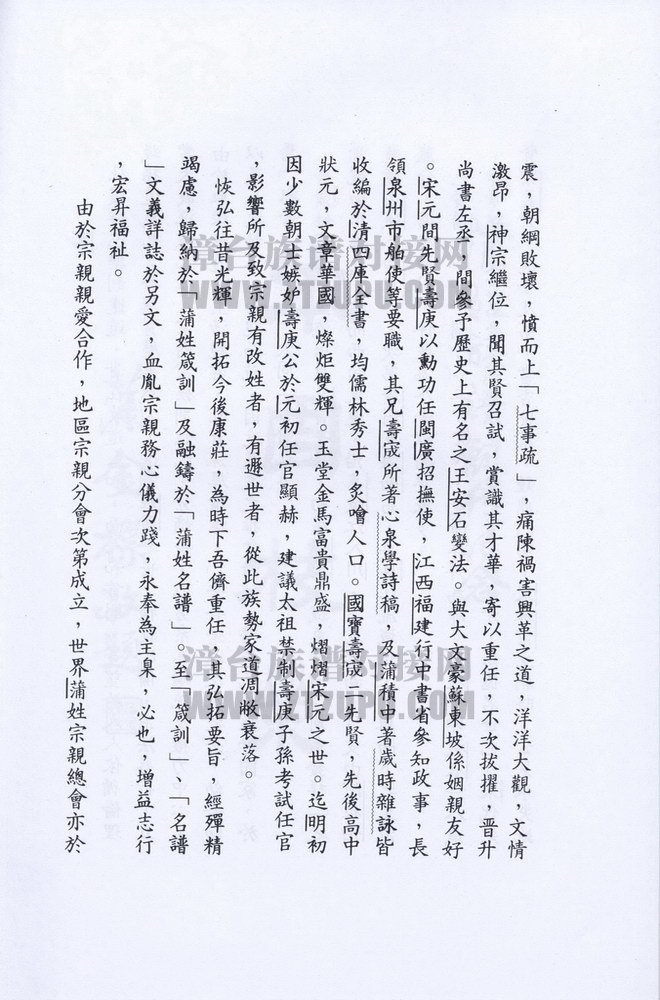 震，朝綱敗壞，憤而上「七事疏」，痛陳禍害興革之道，洋洋大觀，文情
激昂，神宗繼位，聞其賢召試，賞識其才華，寄以重任，不次拔擢，晋升
尚書左丞，間參予歷史上有名之王安石變法。與大文豪蘇東坡係姻親友好
。宋元間先賢壽庚以勳功任閩廣招撫使，江西福建行中書省參知政事，長
領泉州市舶使等要職，其兄壽宬所著心泉學詩稿，及蒲積中著歲時雜詠皆
收編於清四庫全書，均儒林秀士，炙噲人口。國寶壽宬二先賢，先後高中
狀元，文章華國，燦炬雙輝。玉堂金馬富貴鼎盛，熠熠宋元之世。迄明初
因少數朝士嫉妒壽庚公於元初任官顯赫，建議太祖禁制壽庚子孫考試任官
，影響所及致宗親有改姓者，有遯世者，從此族勢家道凋敝衰落。
恢弘往昔光輝，開拓今後康莊，為時下吾儕重任，其弘拓要旨，經殫精
竭慮，歸納於「蒲姓箴訓」及融鑄於「蒲姓名譜」。至「箴訓」、「名譜
」文義詳誌於另文，血胤宗親務心儀力踐，永奉為主臬，必也，增益志行
，宏昇福祉。
由於宗親親愛合作，地區宗親分會次第成立，世界蒲姓宗親總會亦於
漳台族谱对接网
WWW.ZTZUPU.COM
漳台族谱对接网
WWW.ZTZUPU.COM